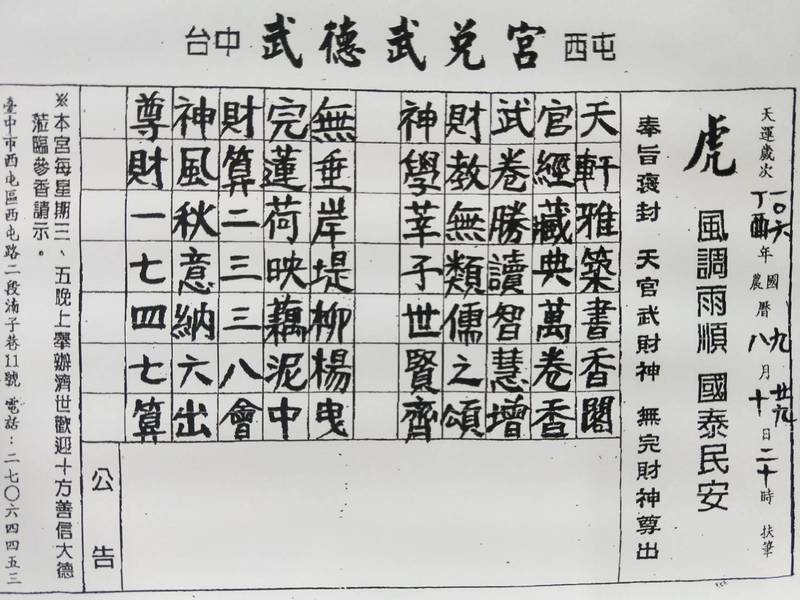 台中 武德武兌宮 西屯
天運歲次 一〇六 丁酉 年 國農曆 九八 月 廿九十 日 二十時 扶筆
虎 風調雨順 國泰民安
奉旨褒封 天官武財神 無完財神尊出
天軒雅築書香閣
官經藏典萬卷香
武卷勝讀智慧增
財教無類儒之頌
神學莘子世賢齊
無垂岸堤柳楊曳
完蓮荷映藕泥中
財算二三三八會
神風秋意納六出
尊財一七四七算
公告
※本宮每星期三、五晚上舉辦濟世歡迎十方善信大德
蒞臨參香請示。
臺中市西屯區西屯路二段湳子巷11號 電話：二七〇六四四五三